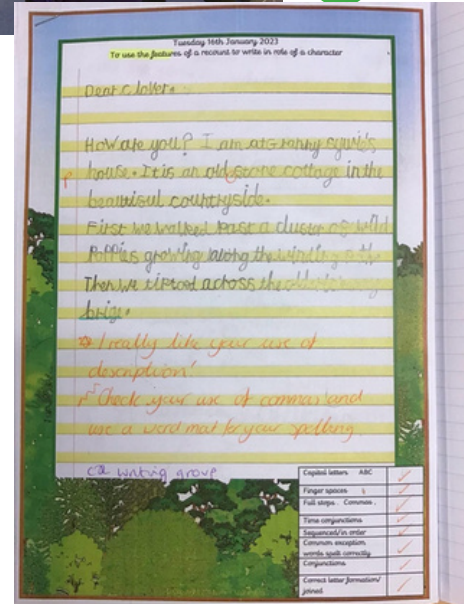 Tuesday 16th January 2023
To use the features of a recount to write in role of a character
Dear Clover.
How are you? I am at Granny
house. It is an old stone cottage in the
beautisul countryside.
First we walked past a cluster wild
Poppies growing along the winding
Then we tiptod across the
brige.
I really like your use of
description!
Check your use of commas and
use a word mat for your spelling.
writing group
Capital letters ABC
Finger spaces
Full stops . Commas ,
Time conjunctions
Sequenced/in order
Common exception
words spelt correctly
Conjunctions
Correct letter formation/
joined